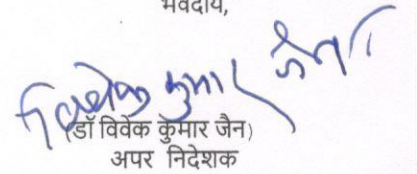 भवदीय,
विवेक कुमार जैन
(डॉ विवेक कुमार जैन)
अपर निदेशक